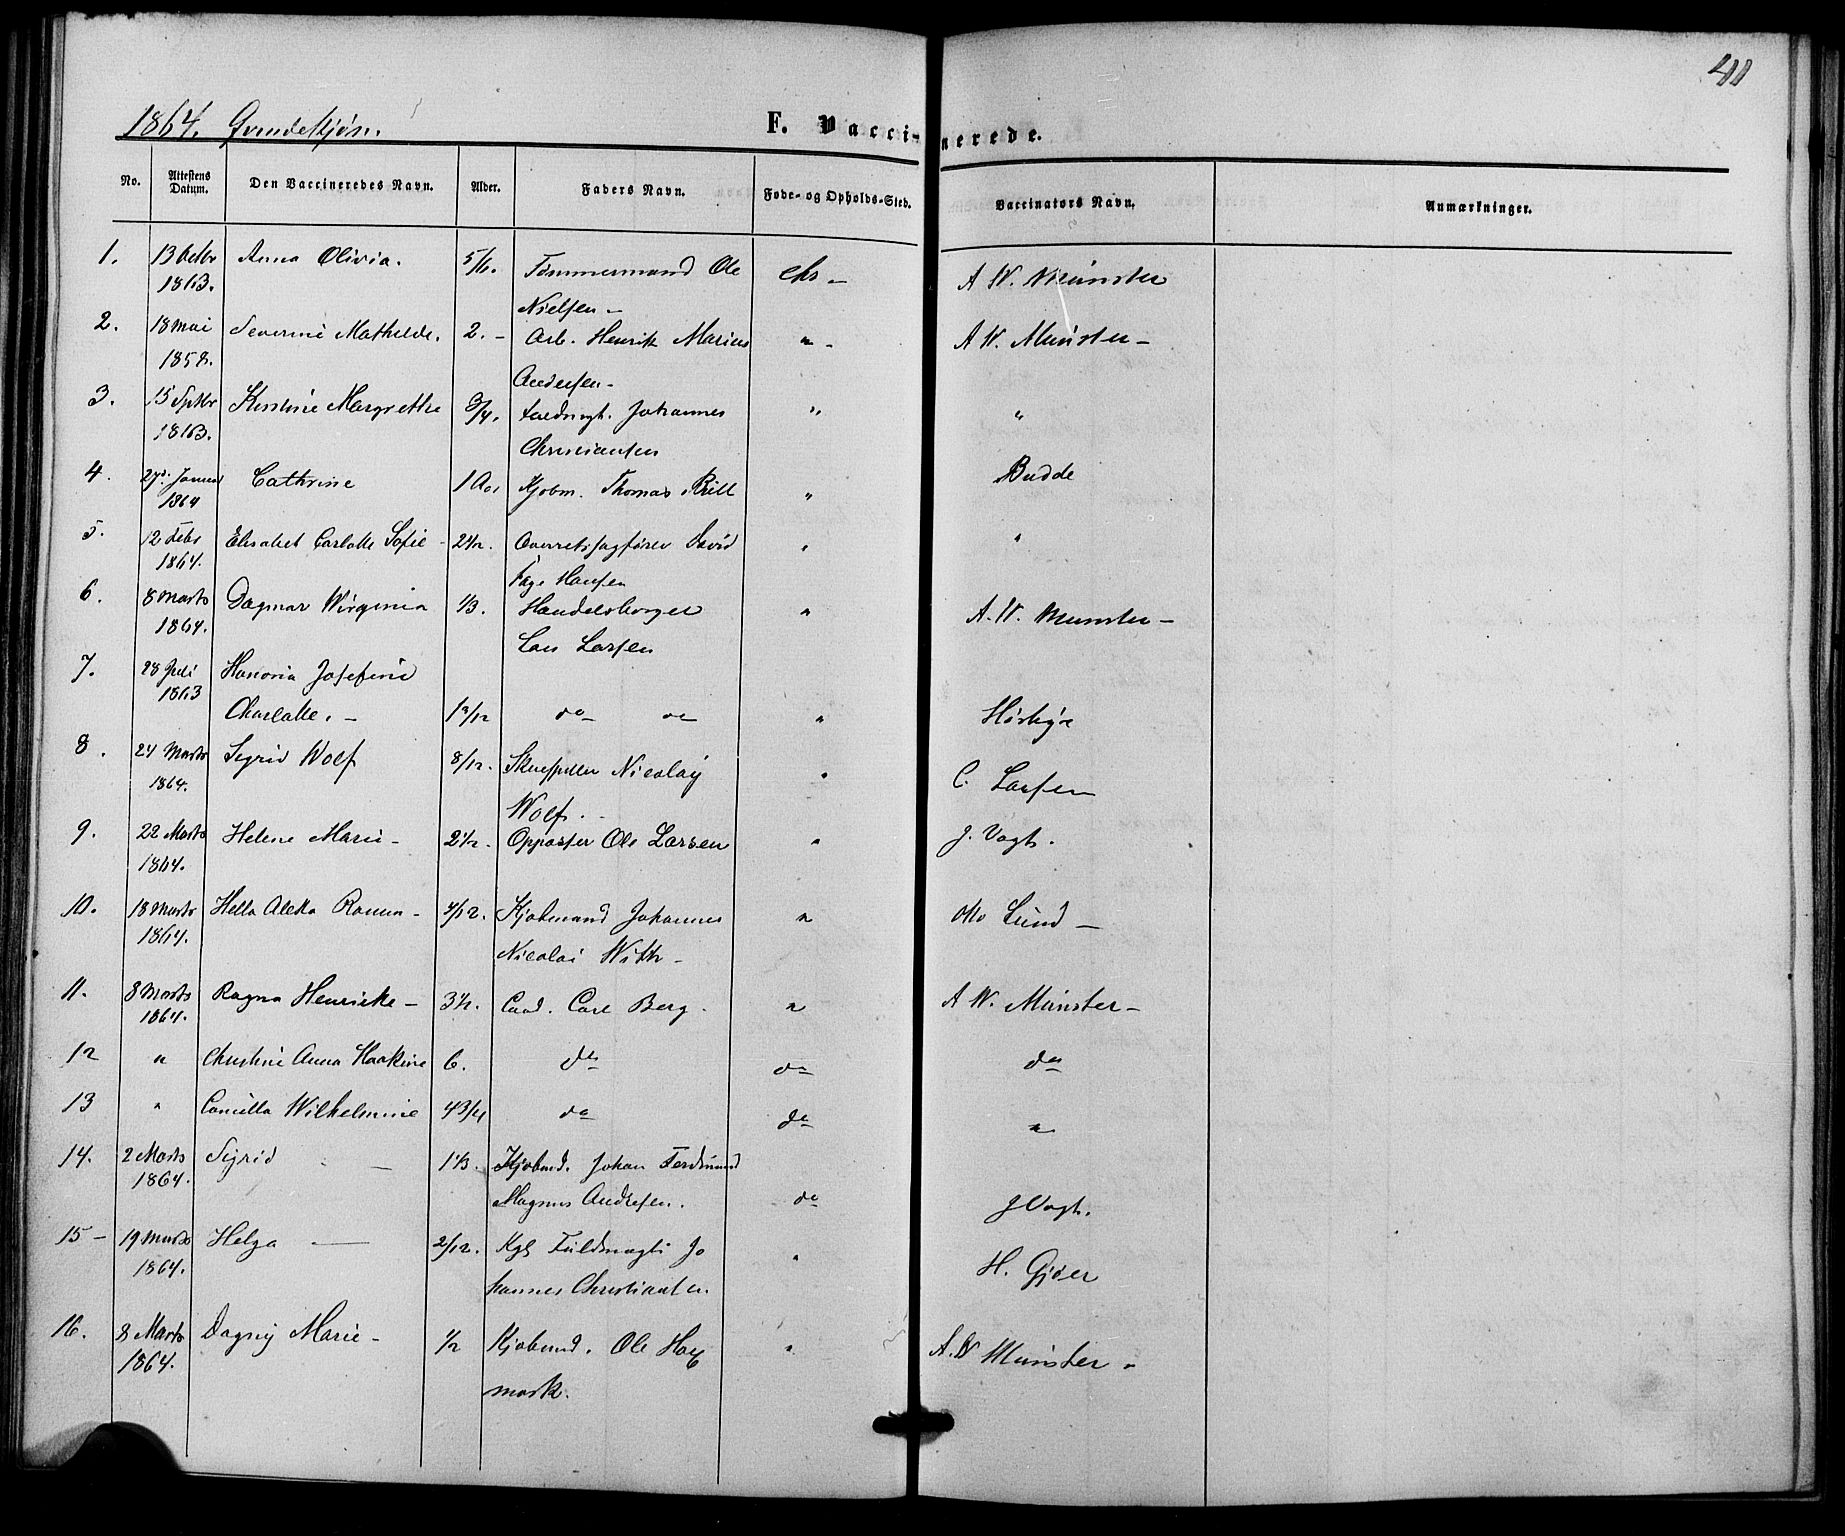 411
1864. Qvindekjøn.
F. Vaccinerede.
No. Attestens Datum. Den Vaccineredes Navn. Alder. Faders Navn. Føde- og Opholds-Sted. Vaccinators Navn. Anmærkninger.
1. 13 Octbr 1863. Anna Olivia. 5/6. Tømmermand Ole Chr - A W. Münster
Nielsen -
2. 18 Mai 1858. Severine Mathilde. 2. - Arb. Henrik Marius " - A W. Münster -
Andersen -
3. 15 Septbr 1863. Kirstine Margrethe 3/4. Fuldmgt. Johannes " "
Christiansen
4. 27d. Januar 1864 Cathrine 1 Aar Kjøbm. Thomas Brill " Budde
5. 12 Febr 1864. Elisabet Carlotte Sofie - 2 1/2. Overretssagfører David " "
Hansen
6. 8 Marts 1864. Dagmar Wirginia 1/3. Handelsborger " A. W. Munster -
Lars Larsen
7. 28 Juli 1863 Honoria Josefine
Charlotte. - do do "
8. 24 Marts 1864. Sigrid Wolf 8/12. Skuespiller Nicolay " C. Larsen
Wolf. -
9. 22 Marts 1864. Helene Marie - 2 1/2. Oppasser Ole Larsen " J. Vogt.
10. 18 Marts 1864. 4/12. Kjøbmand Johannes " Otto Lund -
Nicolai With -
11. 8 Marts 1864. Ragna Henrikke - 3 1/2. Cand. Carl Berg. " A W. Münster -
12 " Christine Anna Haakine 6. do do do
13 " Camilla Wilhelmine 4 3/4 do do "
14. 2 Marts 1864. Sigrid - 1 1/3. Kjøbmd. Johan Ferdinand
Magnus Andresen. do J Vogt.
15 - 19 Marts 1864. Helga - 2/12. Kgl Fuldmægti Jo " H. Gjør
hannes Christiansen.
16. 8 Marts 1864. Dagny Marie - 1/2 Kjøbmd. Ole Hag " A. W Münster -
mark.